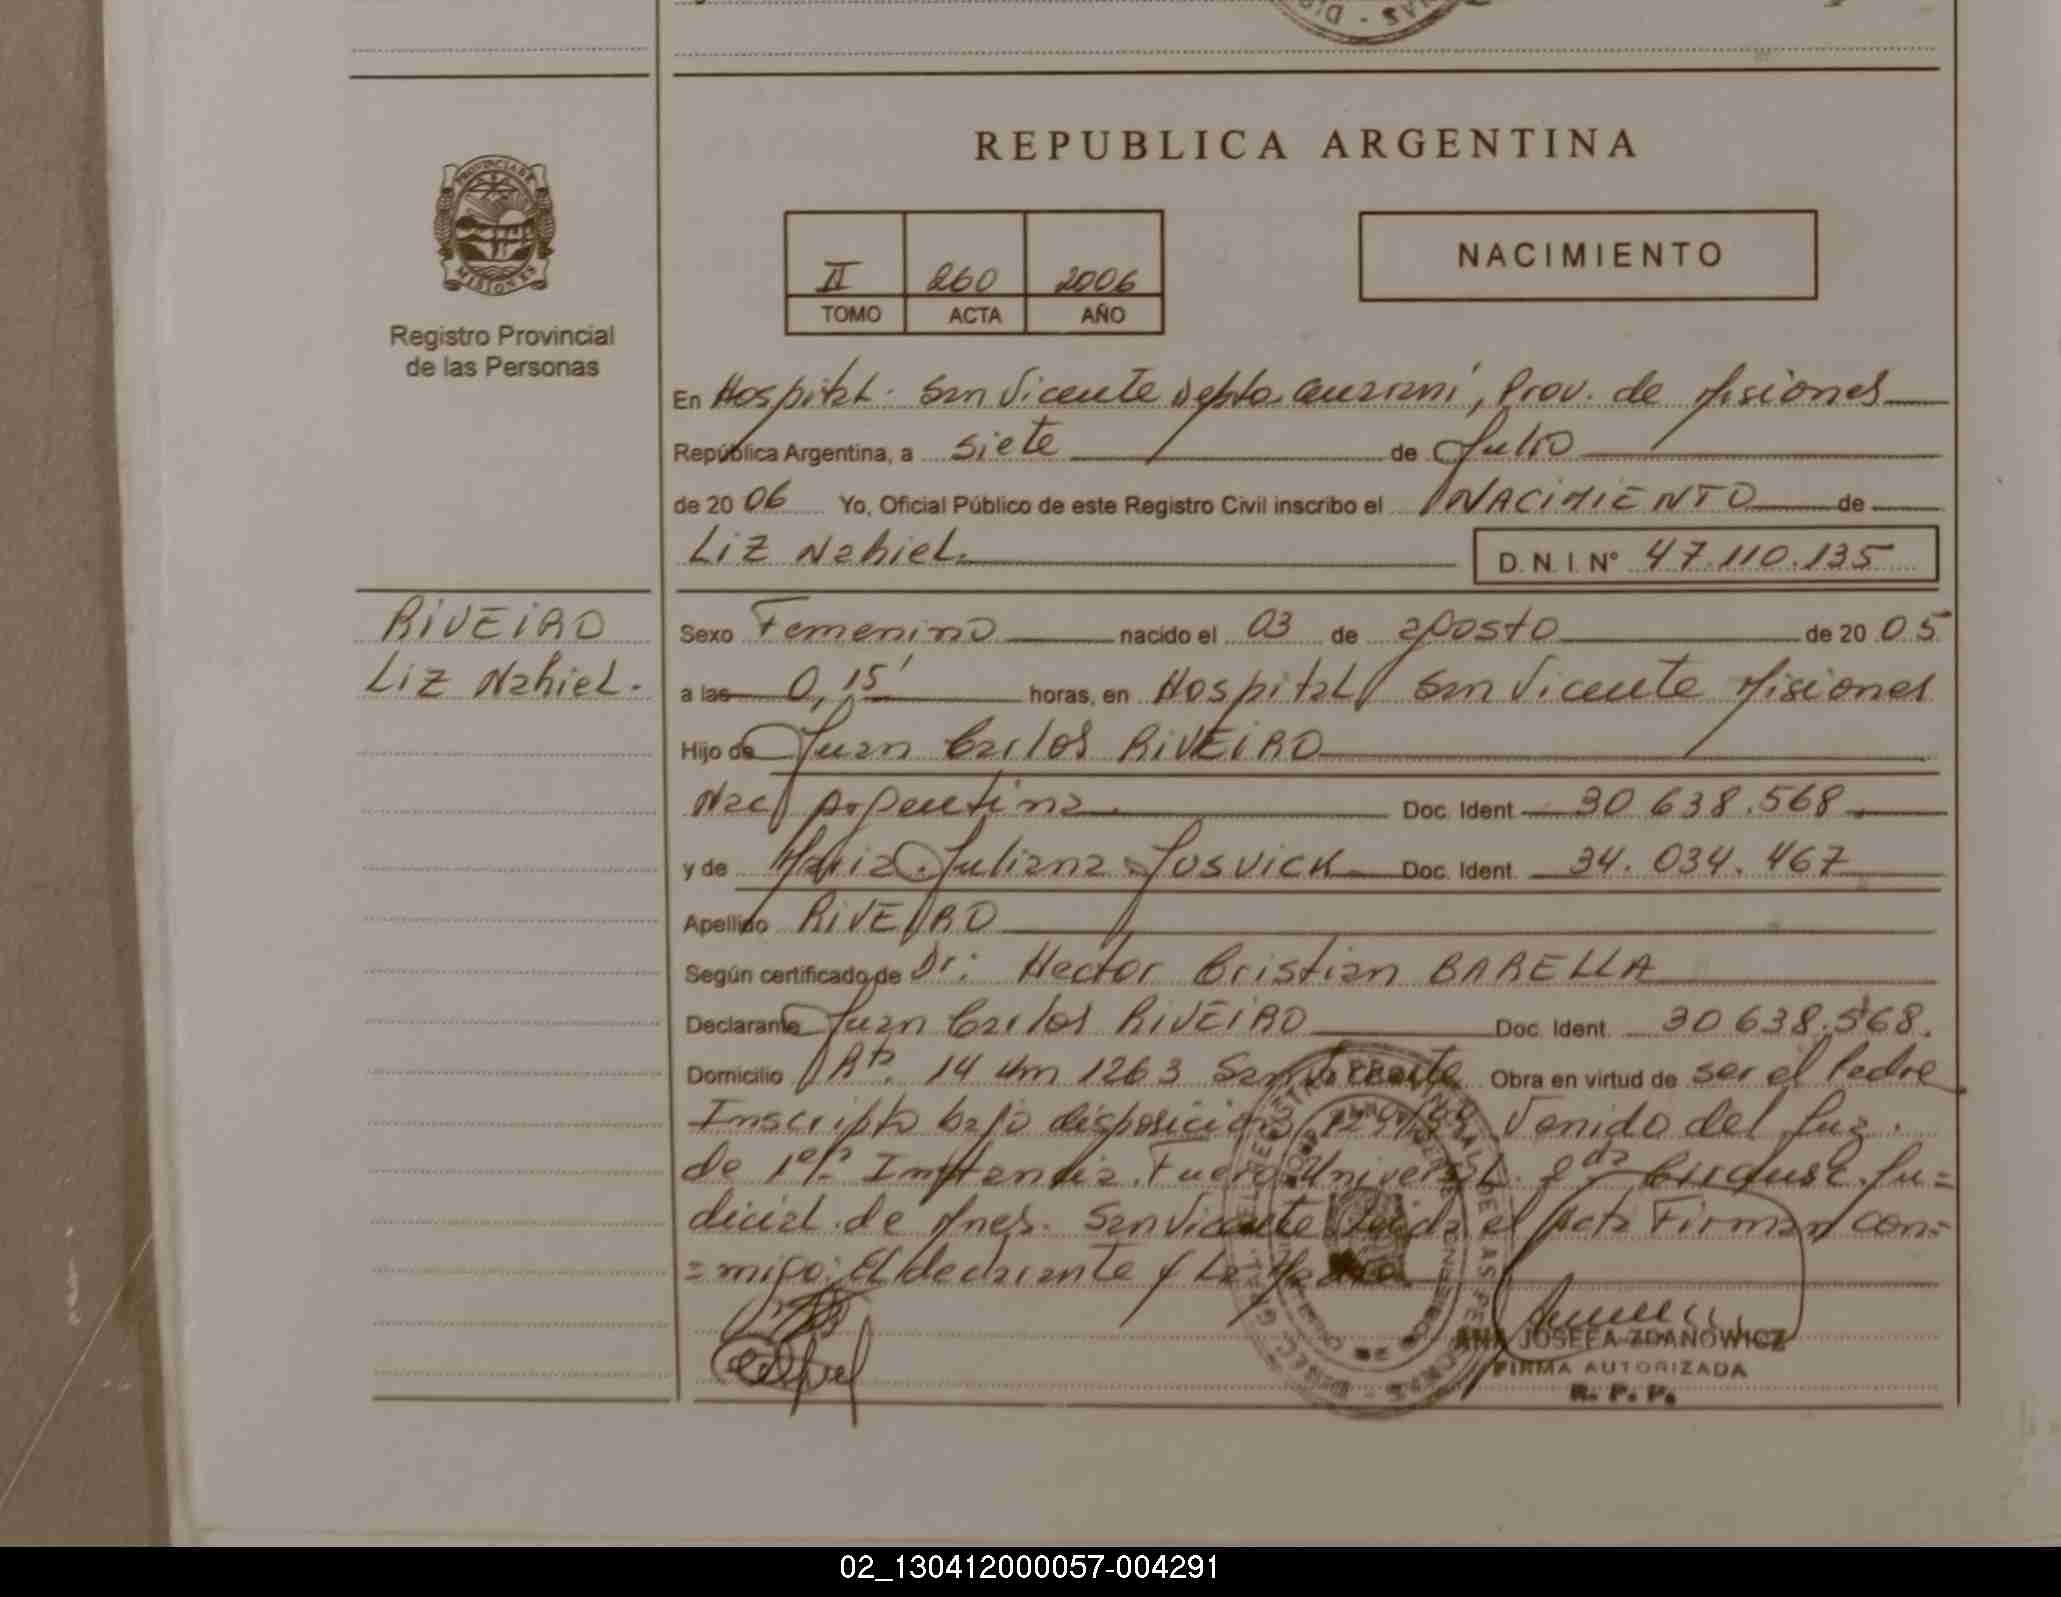 REPUBLICA ARGENTINA
PROVINCIA DE
MISIONES
Registro Provincial
de las Personas
II 260 2006
TOMO ACTA AÑO
NACIMIENTO
En Hospital. San Vicente Depto. Guaraní, Prov. de Misiones
República Argentina, a siete de Julio
de 20 06 Yo, Oficial Público de este Registro Civil inscribo el NACIMIENTO de
Liz Nahiel. D. N. I. Nº 47.110.135
RIVEIRO
Liz Nahiel.
Sexo Femenino nacido el 03 de agosto de 20 05
a las 0,15' horas, en Hospital San Vicente Misiones
Hijo de Juan Carlos RIVEIRO
Nac argentina. Doc. Ident 30 638.568
y de Maria Juliana JUSVICK Doc. Ident. 34. 034. 467
Apellido RIVEIRO
Según certificado de Dr: Hector Cristian BARELLA
Declarante Juan Carlos RIVEIRO Doc. Ident. 30 638.568.
Domicilio Rta. 14 Km 1263 San Vicente Obra en virtud de ser el Padre
Inscripto bajo disposición Venido del Juz.
de 1era Instancia. Fuero Universal. 2da Judicial
dicial. de Mnes. San Vicente Leida el Acta Firman con=
=migo: El declarante y La Madre
ANA JOSEFA ZDANOWICZ
FIRMA AUTORIZADA
R. P. P.
02_130412000057-004291